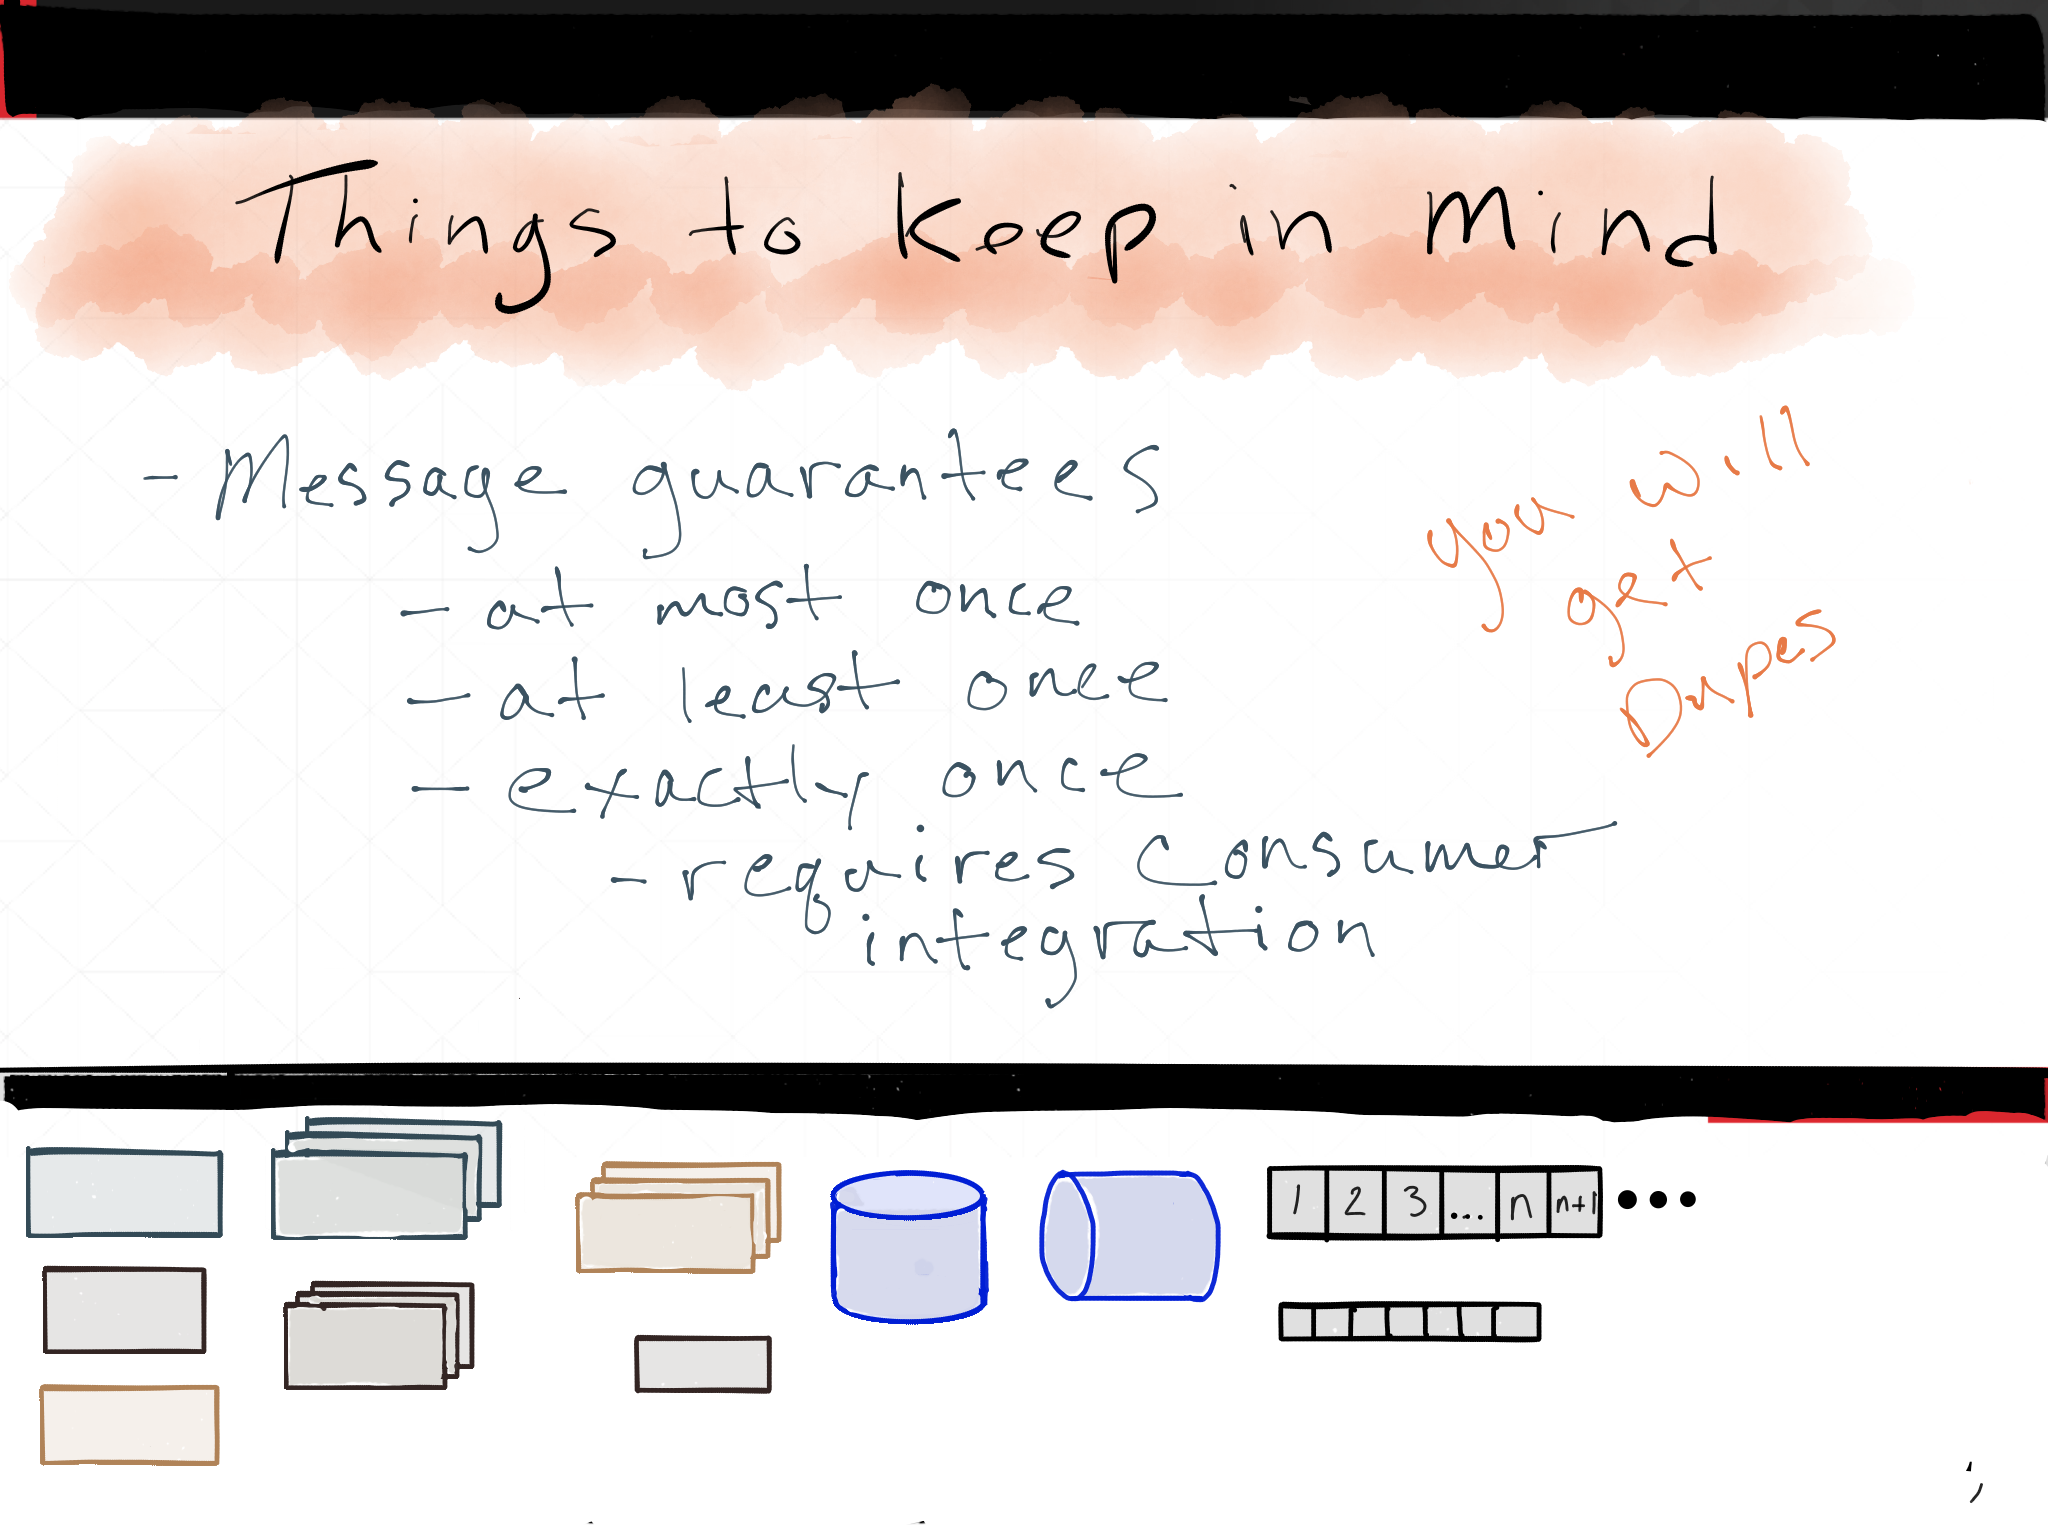 Things to Keep in Mind
- Message guarantees
- at most once
- at least once
- exactly once
- requires Consumer
integration
you will
get
Dupes
1 2 3 ... n n+1 •••